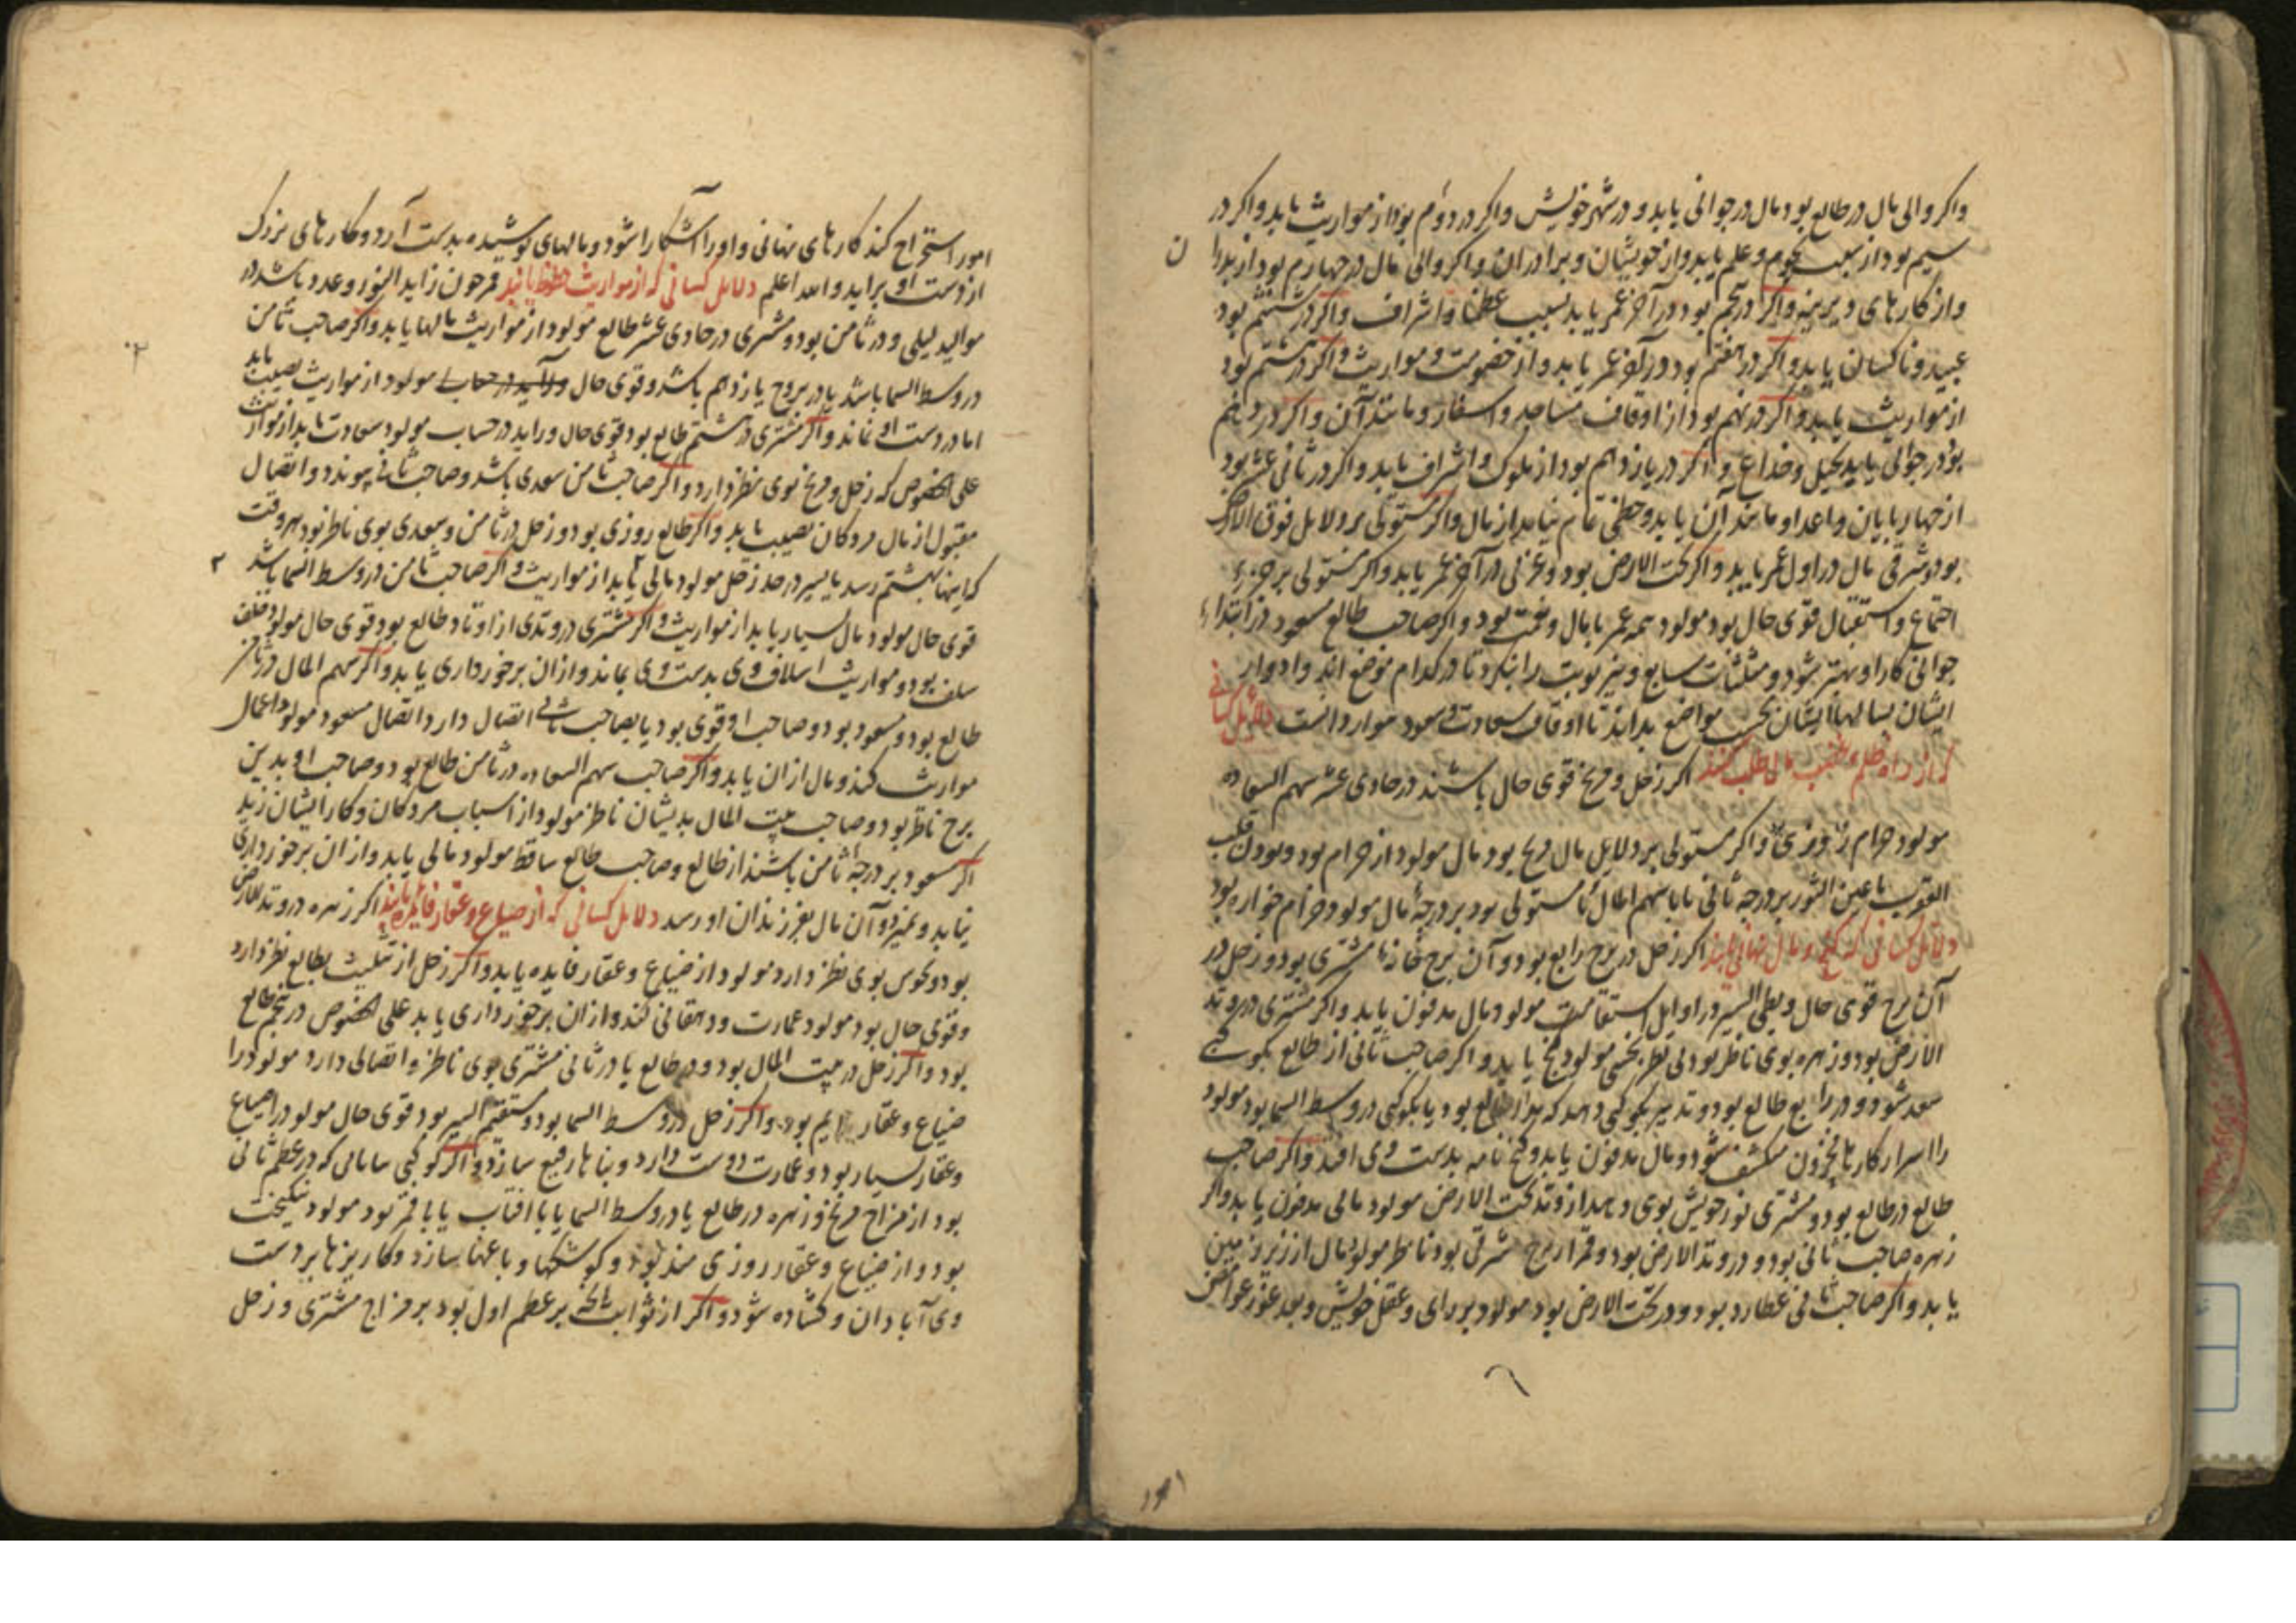 واکر والی مال در طالع بود مال در جوانی یابد و در شهر خویش واکر در دوم بود از مواریث یابد واکر در
سیم بود از سبب نجوم و علم یابد و از خویشان و برادران واکر والی مال در چهارم بود از پدر
و از کارهای دیرینه واکر در پنجم بود در آخر عمر یابد بسبب عظما و اشراف واکر در ششم بود
عبید و ناکسان یابد واکر در هفتم بود در آخر عمر یابد و از خصومت و مواریث واکر در هشتم بود
از مواریث یابد واکر در نهم بود از اوقاف مساجد و اسفار و مانند آن واکر در دهم
بود در جوانی یابد بحیل و خداع واکر در یازدهم بود از ملوک و اشراف یابد واکر در ثانی عشر بود
از چهارپایان و اعدا و مانند آن یابد و حظی تمام نیابد از مال واکر مستولی بر دلایل فوق الارض
بود و شرقی مال در اول عمر یابد واکر تحت الارض بود و غربی در آخر عمر یابد واکر مستولی بر جزء
اجتماع و استقبال قوی حال بود مولود همه عمر با مال و نعمت بود واکر صاحب طالع مسعود در ابتداء
جوانی کار او بهتر شود و مثلثات سابع و نیز نوبت را بنکرد تا در کدام موضع اند و ادوار
ایشان بسالها ایشان بحسب مواضع بداند تا اوقات سعادت و سعود موارد دانست دلایل کسانی
که از راه ظلم و غصب مال طلب کنند اکر زحل و مریخ قوی حال باشند در حادی عشر سهم السعاده
مولود حرام واکر مستولی بر دلایل مال مریخ بود مال مولود از حرام بود و بودن قلب
العقرب یا عین الثور بر درجه ثانی یا با سهم المال یا مستولی بود بر درجه مال مولود حرام خواره بود
دلایل کسانی که کنج و مال نهانی یابند اکر زحل در برج رابع بود و آن برج خانه مشتری بود و زحل در
آن برج قوی حال و بطی السیر در اوایل استقامت مولود مال مدفون یابد واکر مشتری در وتد
الارض بود و زهره بوی ناظر بود بی نظر نحسی مولود کنج یابد واکر صاحب ثانی از طالع بکوکبی
سعد شود و در رابع طالع بود و تدبیر بکوکبی دهد که در طالع بود یا بکوکبی در وسط السما بود مولود
را اسرار کارها مخزون منکشف شود و مال مدفون یابد و کنج نامه بدست وی افتد واکر صاحب
طالع در طالع بود و مشتری نور خویش بوی دهد از وتد تحت الارض مولود مالی مدفون یابد واکر
زهره صاحب ثانی بود و در وتد الارض بود و قمر از برج شرقی بود ناظر مولود مال از زیر زمین
یابد واکر صاحب ثانی عطارد بود و در تحت الارض بود مولود برای و عقل خویش و بعد غور غوامض
امور
امور استخراج کند کارهای نهانی و او را آشکارا شود و مالهای پوشیده بدست آرد و کارهای بزرک
از دست او براید والله اعلم دلایل کسانی که از مواریث حظوظ یابند قمر چون زاید النور و عدد باشد در
موالید لیلی و در ثامن بود و مشتری در حادی عشر طالع مولود از مواریث مالها یابد واکر صاحب ثامن
در وسط السما باشد یا در بروج یازدهم باشد و قوی حال مولود از مواریث نصیب یابد
اما در دست او نماند واکر مشتری در هشتم طالع بود قوی حال و راید در حساب مولود سعادت یابد از مواریث
علی الخصوص که زحل و مریخ بوی نظر دارد واکر صاحب ثامن سعدی باشد و صاحب ثانی پیوندد و اتصال
مقبول از مال مردکان نصیب یابد واکر طالع روزی بود و زحل در ثامن و سعدی بوی ناظر بود هر وقت
که اینها بهشتم رسد یا بسیر در حد زحل مولود مالی یابد از مواریث واکر صاحب ثامن در وسط السما باشد
قوی حال مولود مال بسیار یابد از مواریث واکر مشتری در وتدی از اوتاد طالع بود قوی حال مولود خلف
سلف بود و مواریث اسلاف وی بدست وی بماند و از ان برخورداری یابد واکر سهم المال در ثامن
طالع بود و مسعود بود و صاحب او قوی بود یا بصاحب ثانی اتصال دارد اتصال مسعود مولود اعمال
مواریث کند و مال از ان یابد واکر صاحب سهم السعاده در ثامن طالع بود و صاحب او بدین
برج ناظر بود و صاحب بیت المال بدیشان ناظر مولود از اسباب مردکان و کار ایشان زید
اکر مسعود بر درجه ثامن باشند از طالع و صاحب طالع ساقط مولود مالی یابد و از ان برخورداری
نیابد و بمیرد و آن مال بفرزندان او رسد دلایل کسانی که از ضیاع و عقار فایده یابند اکر زهره در وتد الارض
بود و نحوس بوی نظر دارد مولود از ضیاع و عقار فایده یابد واکر زحل از تثلیث بطالع نظر دارد
و قوی حال بود مولود عمارت و دهقانی کند و از ان برخورداری یابد علی الخصوص در پنجم طالع
بود واکر زحل در بیت المال بود و در طالع یا در ثانی مشتری بوی ناظر و اتصالی دارد مولود را
ضیاع و عقار دایم بود واکر زحل در وسط السما بود و مستقیم السیر بود قوی حال مولود را ضیاع
و عقار بسیار بود و عمارت دوست دارد و بناها رفیع سازد واکر کوکبی بیابانی که در عظم ثانی
بود از مزاج مریخ و زهره در طالع یا در وسط السما یا با افتاب یا با قمر بود مولود نیکبخت
بود و از ضیاع و عقار روزی مند بود و کوشکها و باغها سازد و کاریزها بر دست
وی آبادان و کشاده شود واکر از ثوابت بر عظم اول بود بر مزاج مشتری و زحل